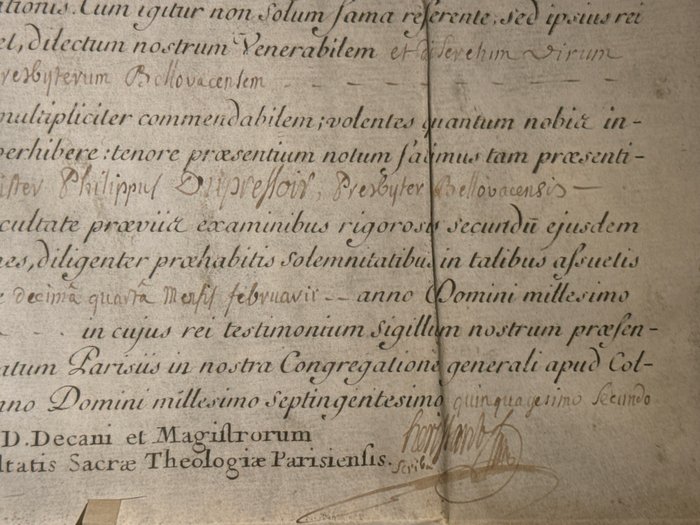 ationis. Cum igitur non solum fama referente, sed ipsius rei
et, dilectum nostrum Venerabilem et discretum Virum
Presbyterum Bellovacensem
multipliciter commendabilem; volentes quantum nobis in-
perhibere: tenore præsentium notum facimus tam præsenti-
ister Philippus Dupressoir, Presbyter Bellovacensis
cultate præviis examinibus rigorosis secundū ejusdem
nes, diligenter præhabitis solemnitatibus in talibus assuetis
e decimâ quartâ Mensis februarii anno Domini millesimo
in cujus rei testimonium sigillum nostrum præsen-
atum Parisiis in nostra Congregatione generali apud Col-
nno Domini millesimo septingentesimo quinquagesimo secundo
D. Decani et Magistrorum
ltatis Sacræ Theologiæ Parisiensis.
scriba